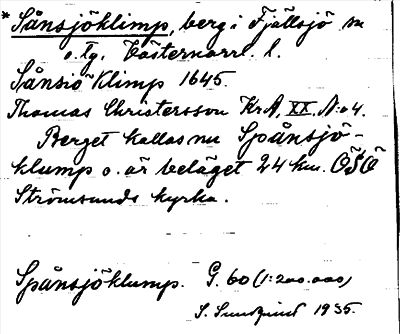 * Sånsjöklimp, berg i Fjällsjö sn
o. Tg. Västernorrl. l.
Sånsiö Klimp 1645.
Thomas Christersson KrA, XX, No 4.
Berget kallas nu Spånsjö-
klump o. är beläget 24 km. ÖSÖ
Strömsunds kyrka.
Spånsjöklump. G. 60 (1:200.000)
S. Sundqvist 1935.